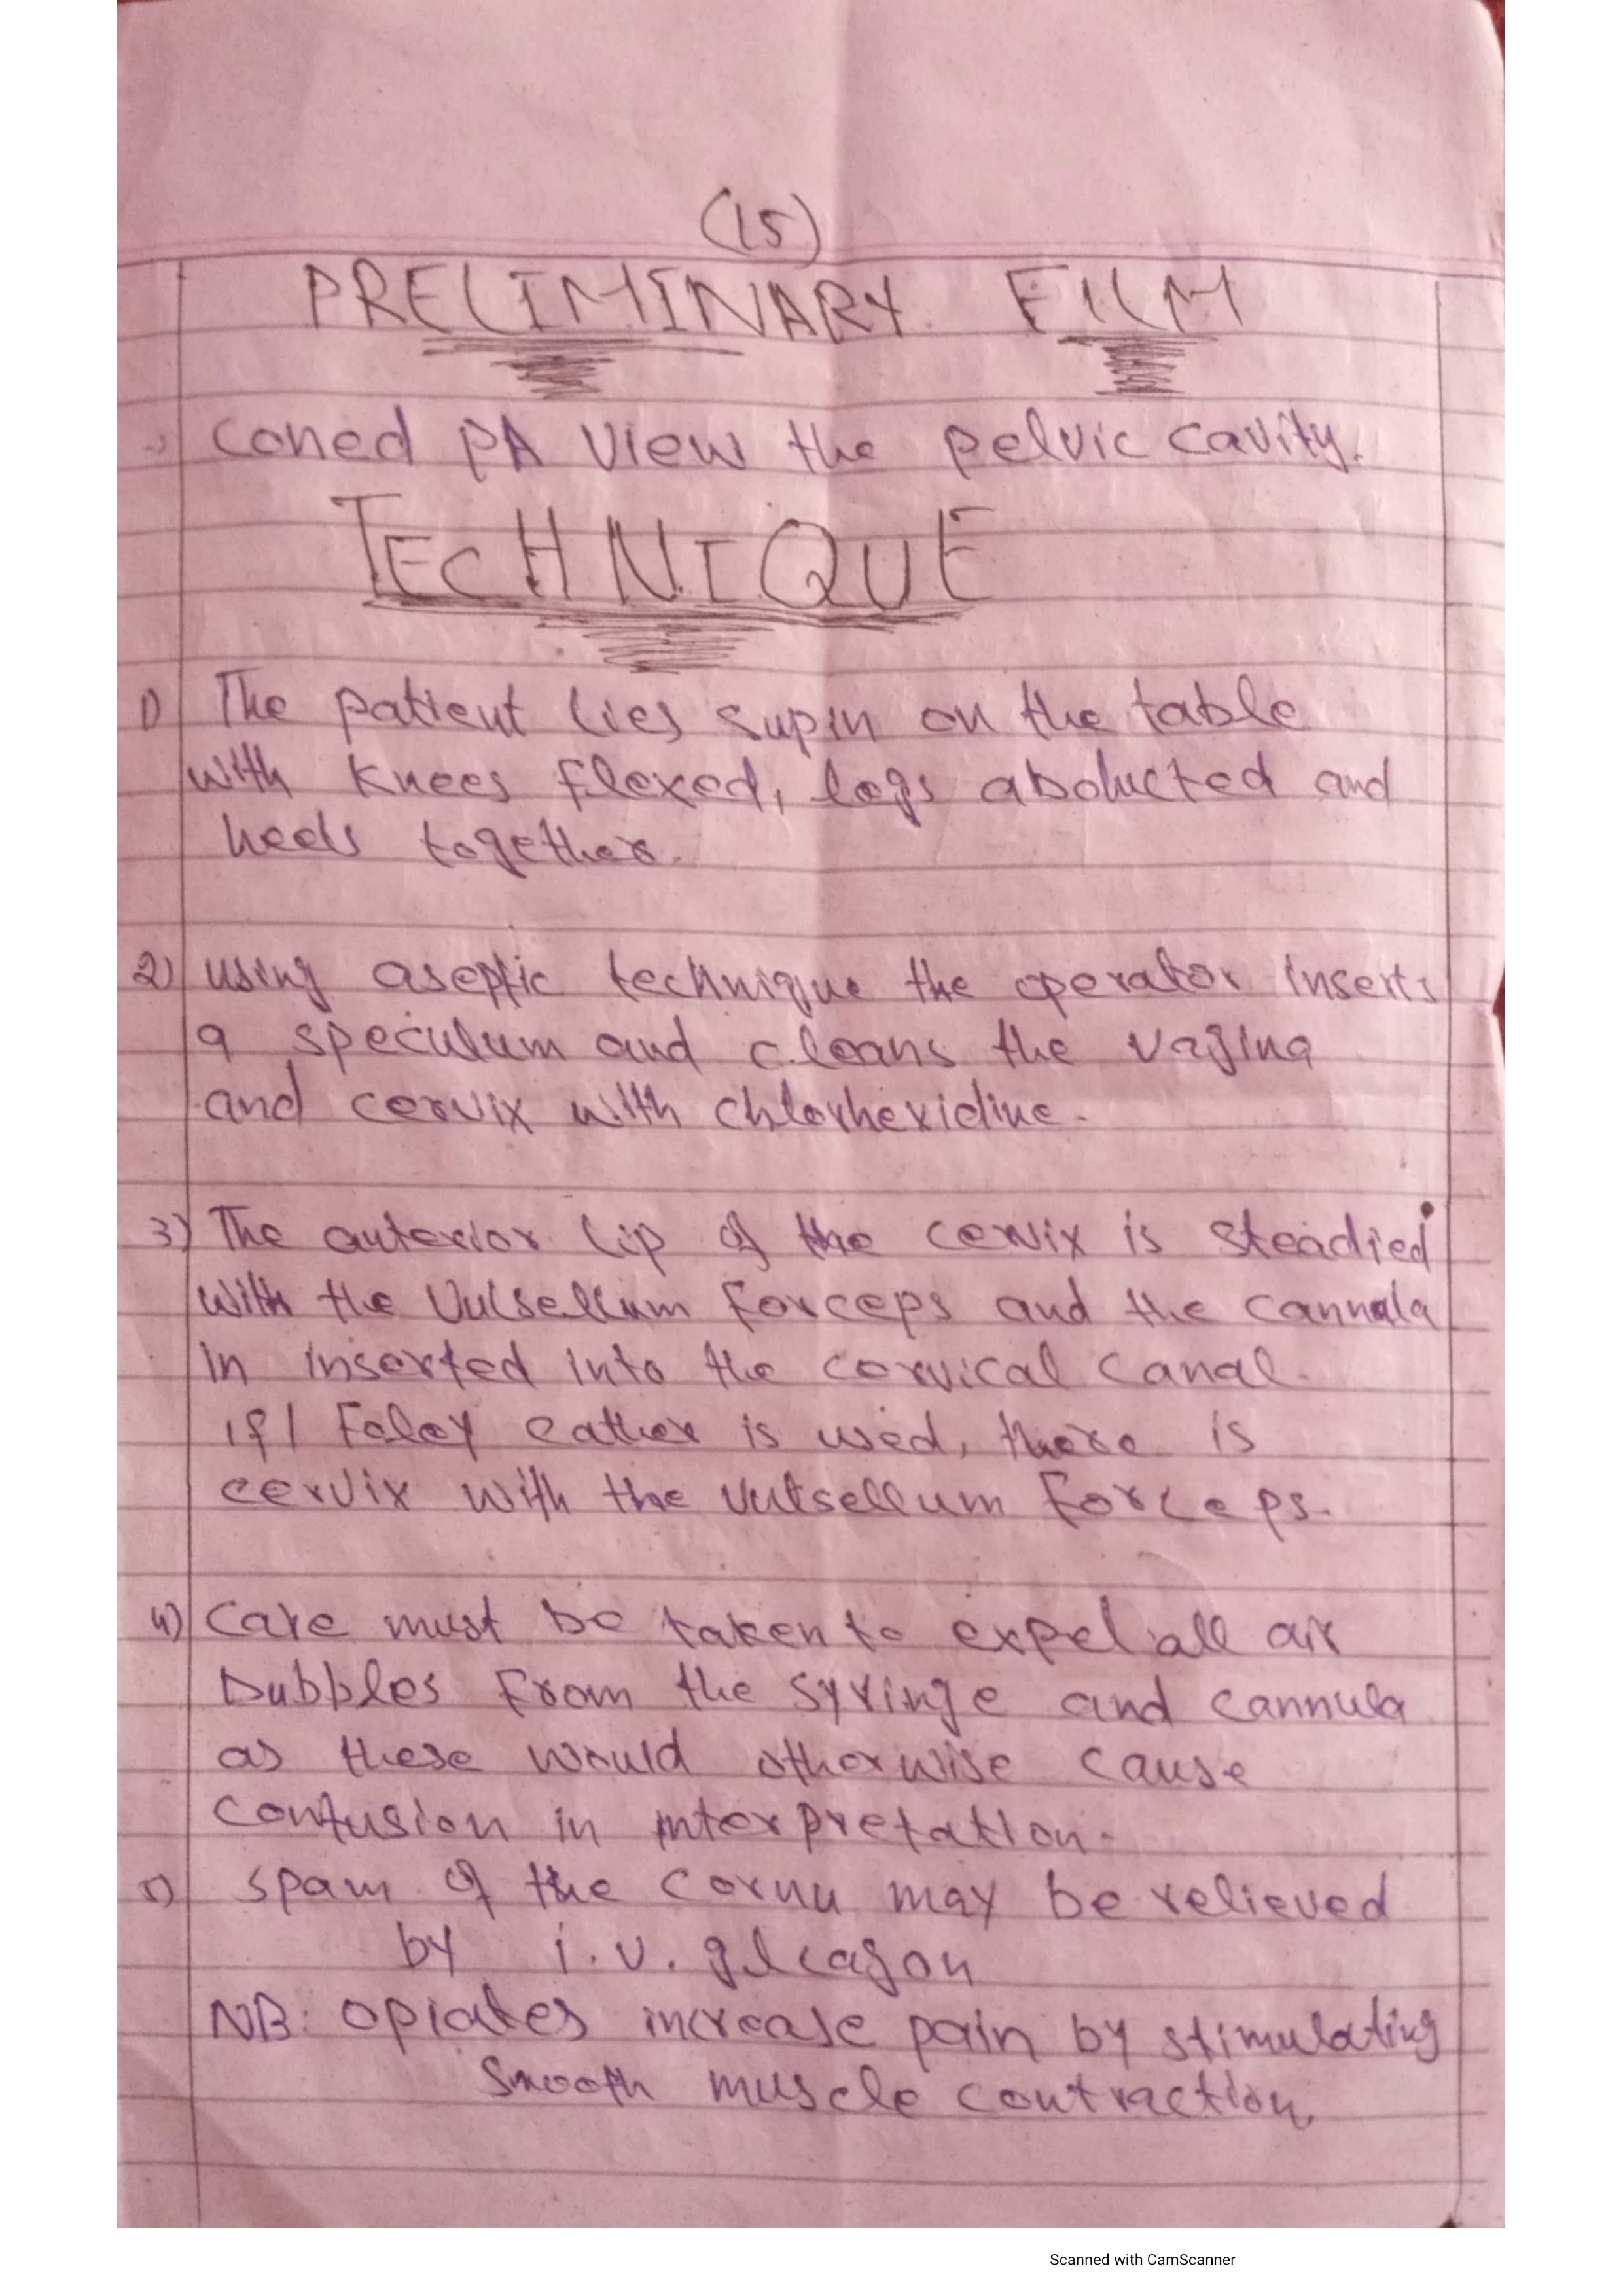 (15)
PRELIMINARY FILM
coned PA view the pelvic cavity.
TECHNIQUE
1) The patient lies supin on the table
with knees flexed, legs abducted and
heels together.
2) using aseptic technique the operator inserts
a speculum and cleans the vagina
and cervix with chlorhexidine.
3) The anterior lip of the cervix is steadied
with the Vulsellum forceps and the cannula
in inserted into the cervical canal.
if / Foley cather is used, there is
cervix with the Vulsellum forceps.
4) Care must be taken to expel all air
bubbles from the syringe and cannula
as these would otherwise cause
confusion in interpretation.
5) spam of the cornu may be relieved
by i.v. glcagon
NB: opiates increase pain by stimulating
smooth muscle contraction
Scanned with CamScanner